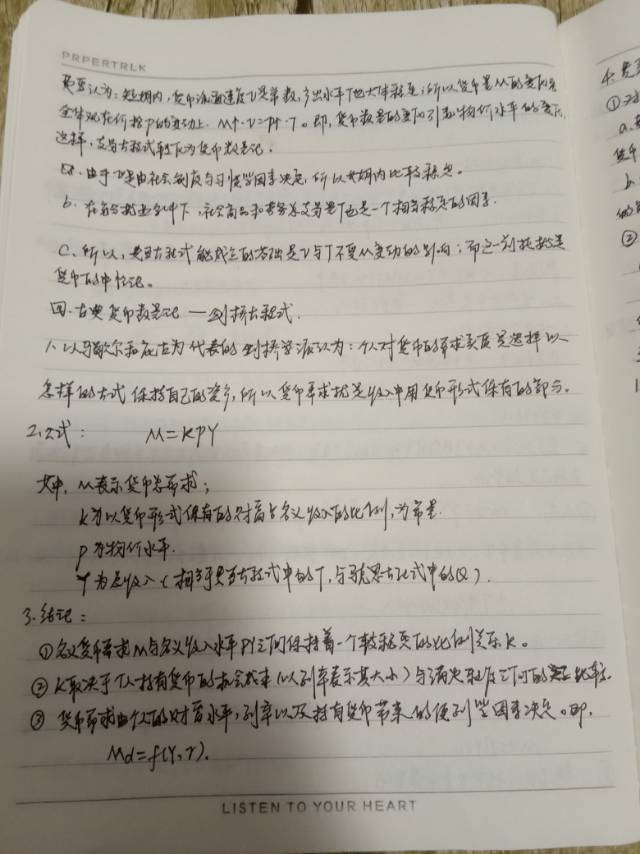 PRPERTRLK
费雪认为:短期内,货币流通速度V是常数,产出水平T也大体稳定,所以货币量M的变动完
全体现在价格P的变动上. M↑·V=P↑·T。即,货币数量的变动引起物价水平的变动,
这样,交易方程式转化为货币数量论。
a.由于V是由社会制度与习惯等因素决定,所以长期内比较稳定。
b.在充分就业条件下,社会商品和劳务总交易量T也是一个相当稳定的因素.
C.所以,费雪方程式能成立的基础是V与T不受M变动的影响;而这一前提就是
货币的中性论。
四.古典货币数量论—剑桥方程式.
1.以马歇尔和庇古为代表的剑桥学派认为:个人对货币的需求实质是选择以
怎样的方式保持自己的资产,所以货币需求就是收入中用货币形式保有的部分。
2.公式: M=KPY
其中,M表示货币总需求;
K为以货币形式保有的财富占名义收入的比例,为常量.
P为物价水平.
Y为总收入(相当于费雪方程式中的T,与马克思方程式中的Q).
3.结论:
①名义货币需求M与名义收入水平PY之间保持着一个较稳定的比例关系K。
②K取决于个人持有货币的机会成本(以利率表示其大小)与满足程度之间的比较.
③货币需求由个人的财富水平,利率以及持有货币带来的便利等因素决定。即,
Md=f(Y,r).
LISTEN TO YOUR HEART
4.费雪
①对
a.
货币
b.
②
1